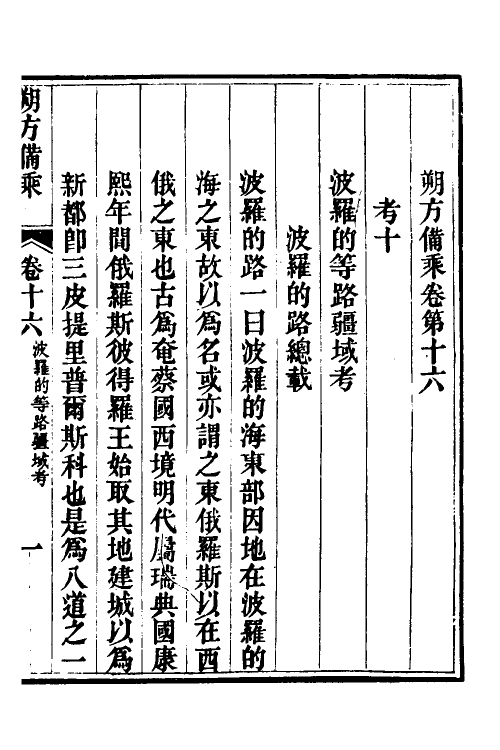 朔方備乘卷第十六
考十
波羅的等路疆域考
波羅的路總載
波羅的路一曰波羅的海東部因地在波羅的
海之東故以爲名或亦謂之東俄羅斯以在西
俄之東也古爲奄蔡國西境明代屬瑞典國康
熙年間俄羅斯彼得羅王始取其地建城以爲
新都卽三皮提里普爾斯科也是爲八道之一
朔方備乘
卷十六
波羅的等路疆域考
一